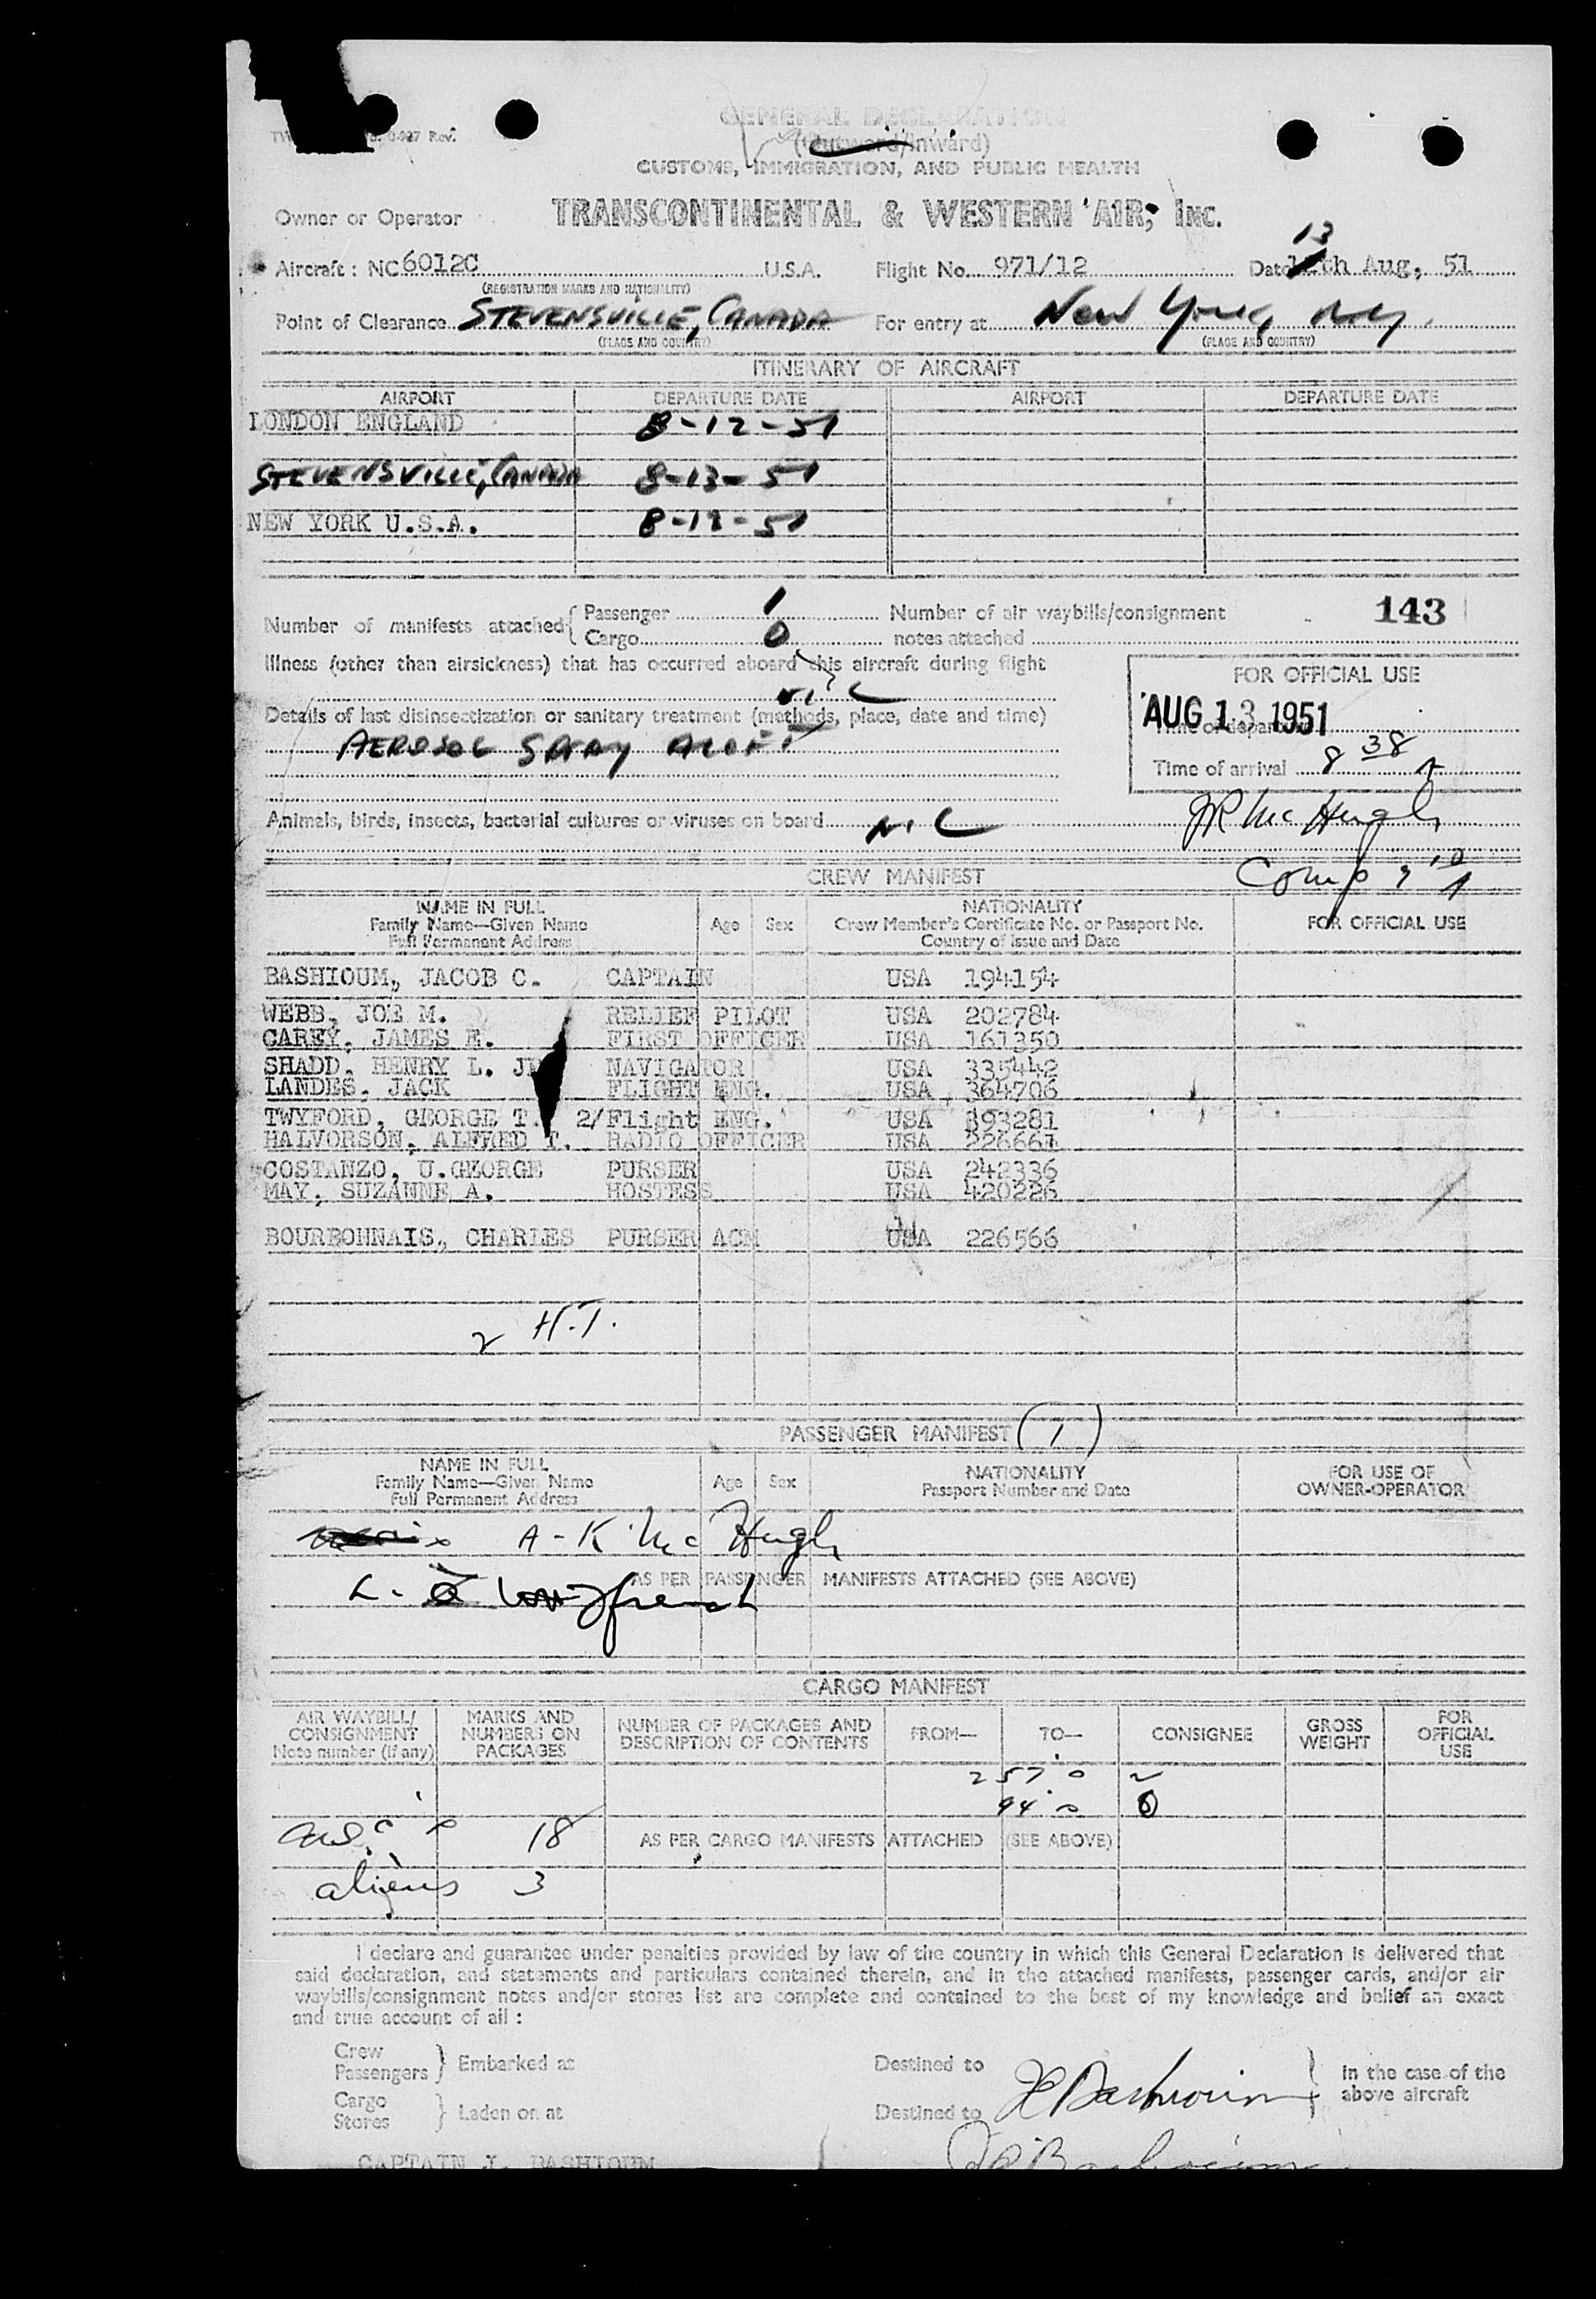 GENERAL DECLARATION
(Outward/Inward)
CUSTOMS, IMMIGRATION, AND PUBLIC HEALTH
Owner or Operator TRANSCONTINENTAL & WESTERN AIR, INC.
13
Aircraft: NC 6012C U.S.A. Flight No. 971/12 Date th Aug, 51
(REGISTRATION MARKS AND NATIONALITY)
Point of Clearance STEVENSVILLE, CANADA For entry at New York, N.Y.
(PLACE AND COUNTRY) (PLACE AND COUNTRY)
ITINERARY OF AIRCRAFT
AIRPORT DEPARTURE DATE AIRPORT DEPARTURE DATE
LONDON ENGLAND 8-12-51
STEVENSVILLE, CANADA 8-13-51
NEW YORK U.S.A. 8-12-51
Number of manifests attached { Passenger 1 Number of air waybills/consignment 143
Cargo 0 notes attached
Illness (other than airsickness) that has occurred aboard this aircraft during flight
FOR OFFICIAL USE
NIL
AUG 13 1951
Details of last disinsectization or sanitary treatment (methods, place, date and time)
Time of departure
AEROSOL SPRAY ALOFT
Time of arrival 8 38 A
Animals, birds, insects, bacterial cultures or viruses on board NIL
JR McHugh
Comp 9 10 A
CREW MANIFEST
NAME IN FULL
Family Name—Given Name
Full Permanent Address
Age Sex
NATIONALITY
Crew Member's Certificate No. or Passport No.
Country of Issue and Date
FOR OFFICIAL USE
BASHIOUM, JACOB C. CAPTAIN USA 194154
WEBB, JOE M. RELIEF PILOT USA 202784
CAREY, JAMES E. FIRST OFFICER USA 161350
SHADD, HENRY L. NAVIGATOR USA 335442
LANDES, JACK FLIGHT ENG. USA 364706
TWYFORD, GEORGE T. 2/Flight ENG. USA 393281
HALVORSON, ALFRED T. RADIO OFFICER USA 226667
COSTANZO, U.GEORGE PURSER USA 242336
MAY, SUZANNE A. HOSTESS USA 420226
BOURBONNAIS, CHARLES PURSER ACM USA 226566
2 H.T.
PASSENGER MANIFEST (1)
NAME IN FULL
Family Name—Given Name
Full Permanent Address
Age Sex
NATIONALITY
Passport Number and Date
FOR USE OF
OWNER-OPERATOR
A-K McHugh
AS PER PASSENGER MANIFESTS ATTACHED (SEE ABOVE)
CARGO MANIFEST
AIR WAYBILL/
CONSIGNMENT
Note number (if any)
MARKS AND
NUMBERS ON
PACKAGES
NUMBER OF PACKAGES AND
DESCRIPTION OF CONTENTS
FROM— TO— CONSIGNEE
GROSS
WEIGHT
FOR
OFFICIAL
USE
257
94
18 AS PER CARGO MANIFESTS ATTACHED (SEE ABOVE)
aliens 3
I declare and guarantee under penalties provided by law of the country in which this General Declaration is delivered that
said declaration, and statements and particulars contained therein, and in the attached manifests, passenger cards, and/or air
waybills/consignment notes and/or stores list are complete and contained to the best of my knowledge and belief an exact
and true account of all:
Crew
Passengers } Embarked at Destined to
Cargo
Stores } Laden on at Destined to
JC Bashioum
} In the case of the
above aircraft
CAPTAIN J. BASHIOUM
JC Bashioum